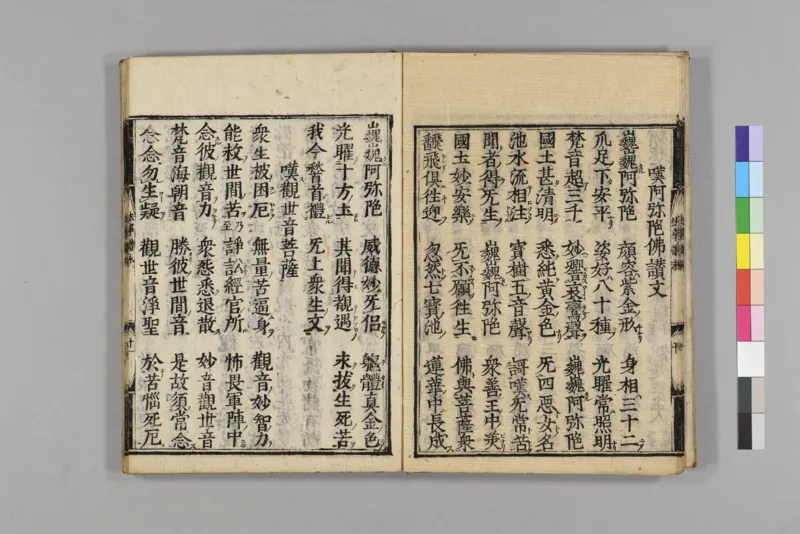 嘆阿弥陁佛讃文
巍巍阿弥陁 顔容紫金形 身相三十二
爪足下安平 姿好八十種 光曜常照明
梵音超三千 妙響哀鸞聲 巍巍阿弥陁
國土甚清明 悉純黄金色 死四悪女名
池水流相注 寳樹五音聲 謌嘆无常苦
聞者得死生 巍巍阿弥陁 衆善王中美
國土妙安樂 死不願徃生 佛與菩薩衆
飜飛俱徃迎 忽然七寳池 蓮華中長成
巍巍阿弥陁 威德妙死侶 軀體真金色
光曜十方土 其聞得覩遇 未拔生死苦
我今瞽首禮 死上衆生文
嘆觀世音菩薩
衆生被困厄 無量苦逼身 觀音妙智力
能救世間苦 諍訟經官所 怖畏軍陣中
念彼觀音力 衆悉悉退散 妙音觀世音
梵音海朝音 勝彼世間音 是故須常念
念念勿生疑 觀世音淨聖 於苦惱死厄